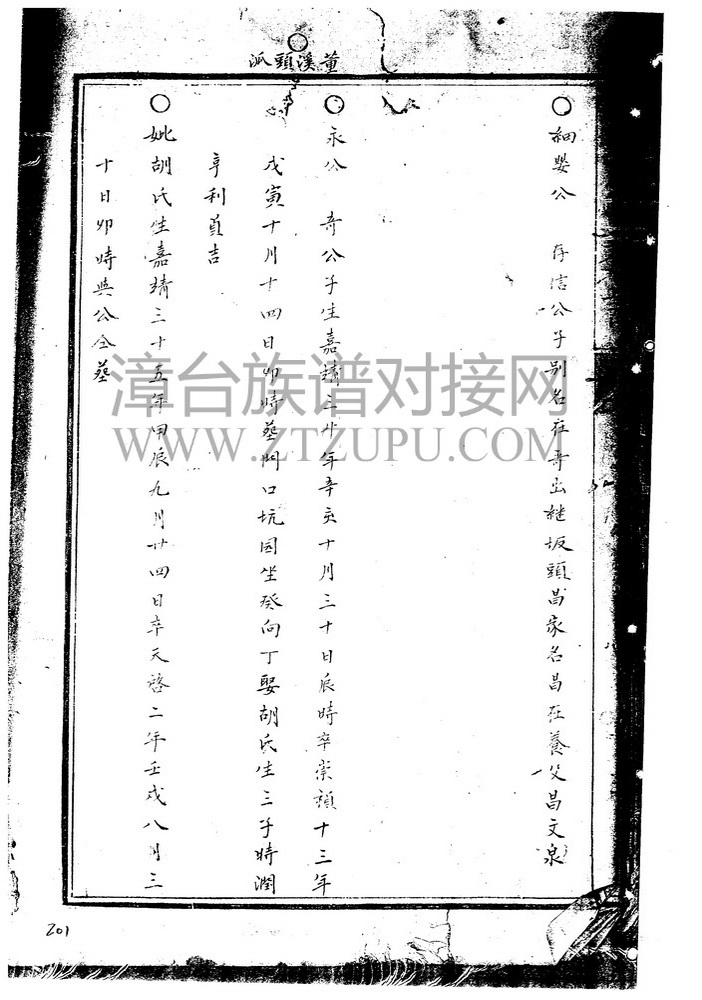 董溪頭派
○細嬰公 存信公子别名在奇出継坂頭昌家名昌在養父昌文泉
○永公 奇公子生嘉靖三十年辛亥十月三十日辰時卒崇禎十三年
戊寅十月十四日卯時葬門口坑園坐癸向丁娶胡氏生三子時潤
亨利貞吉
○妣胡氏生嘉靖三十五年甲辰九月廿四日卒天啓二年壬戌八月三
十日卯時與公仝葬
漳台族谱对接网
WWW.ZTZUPU.COM
201